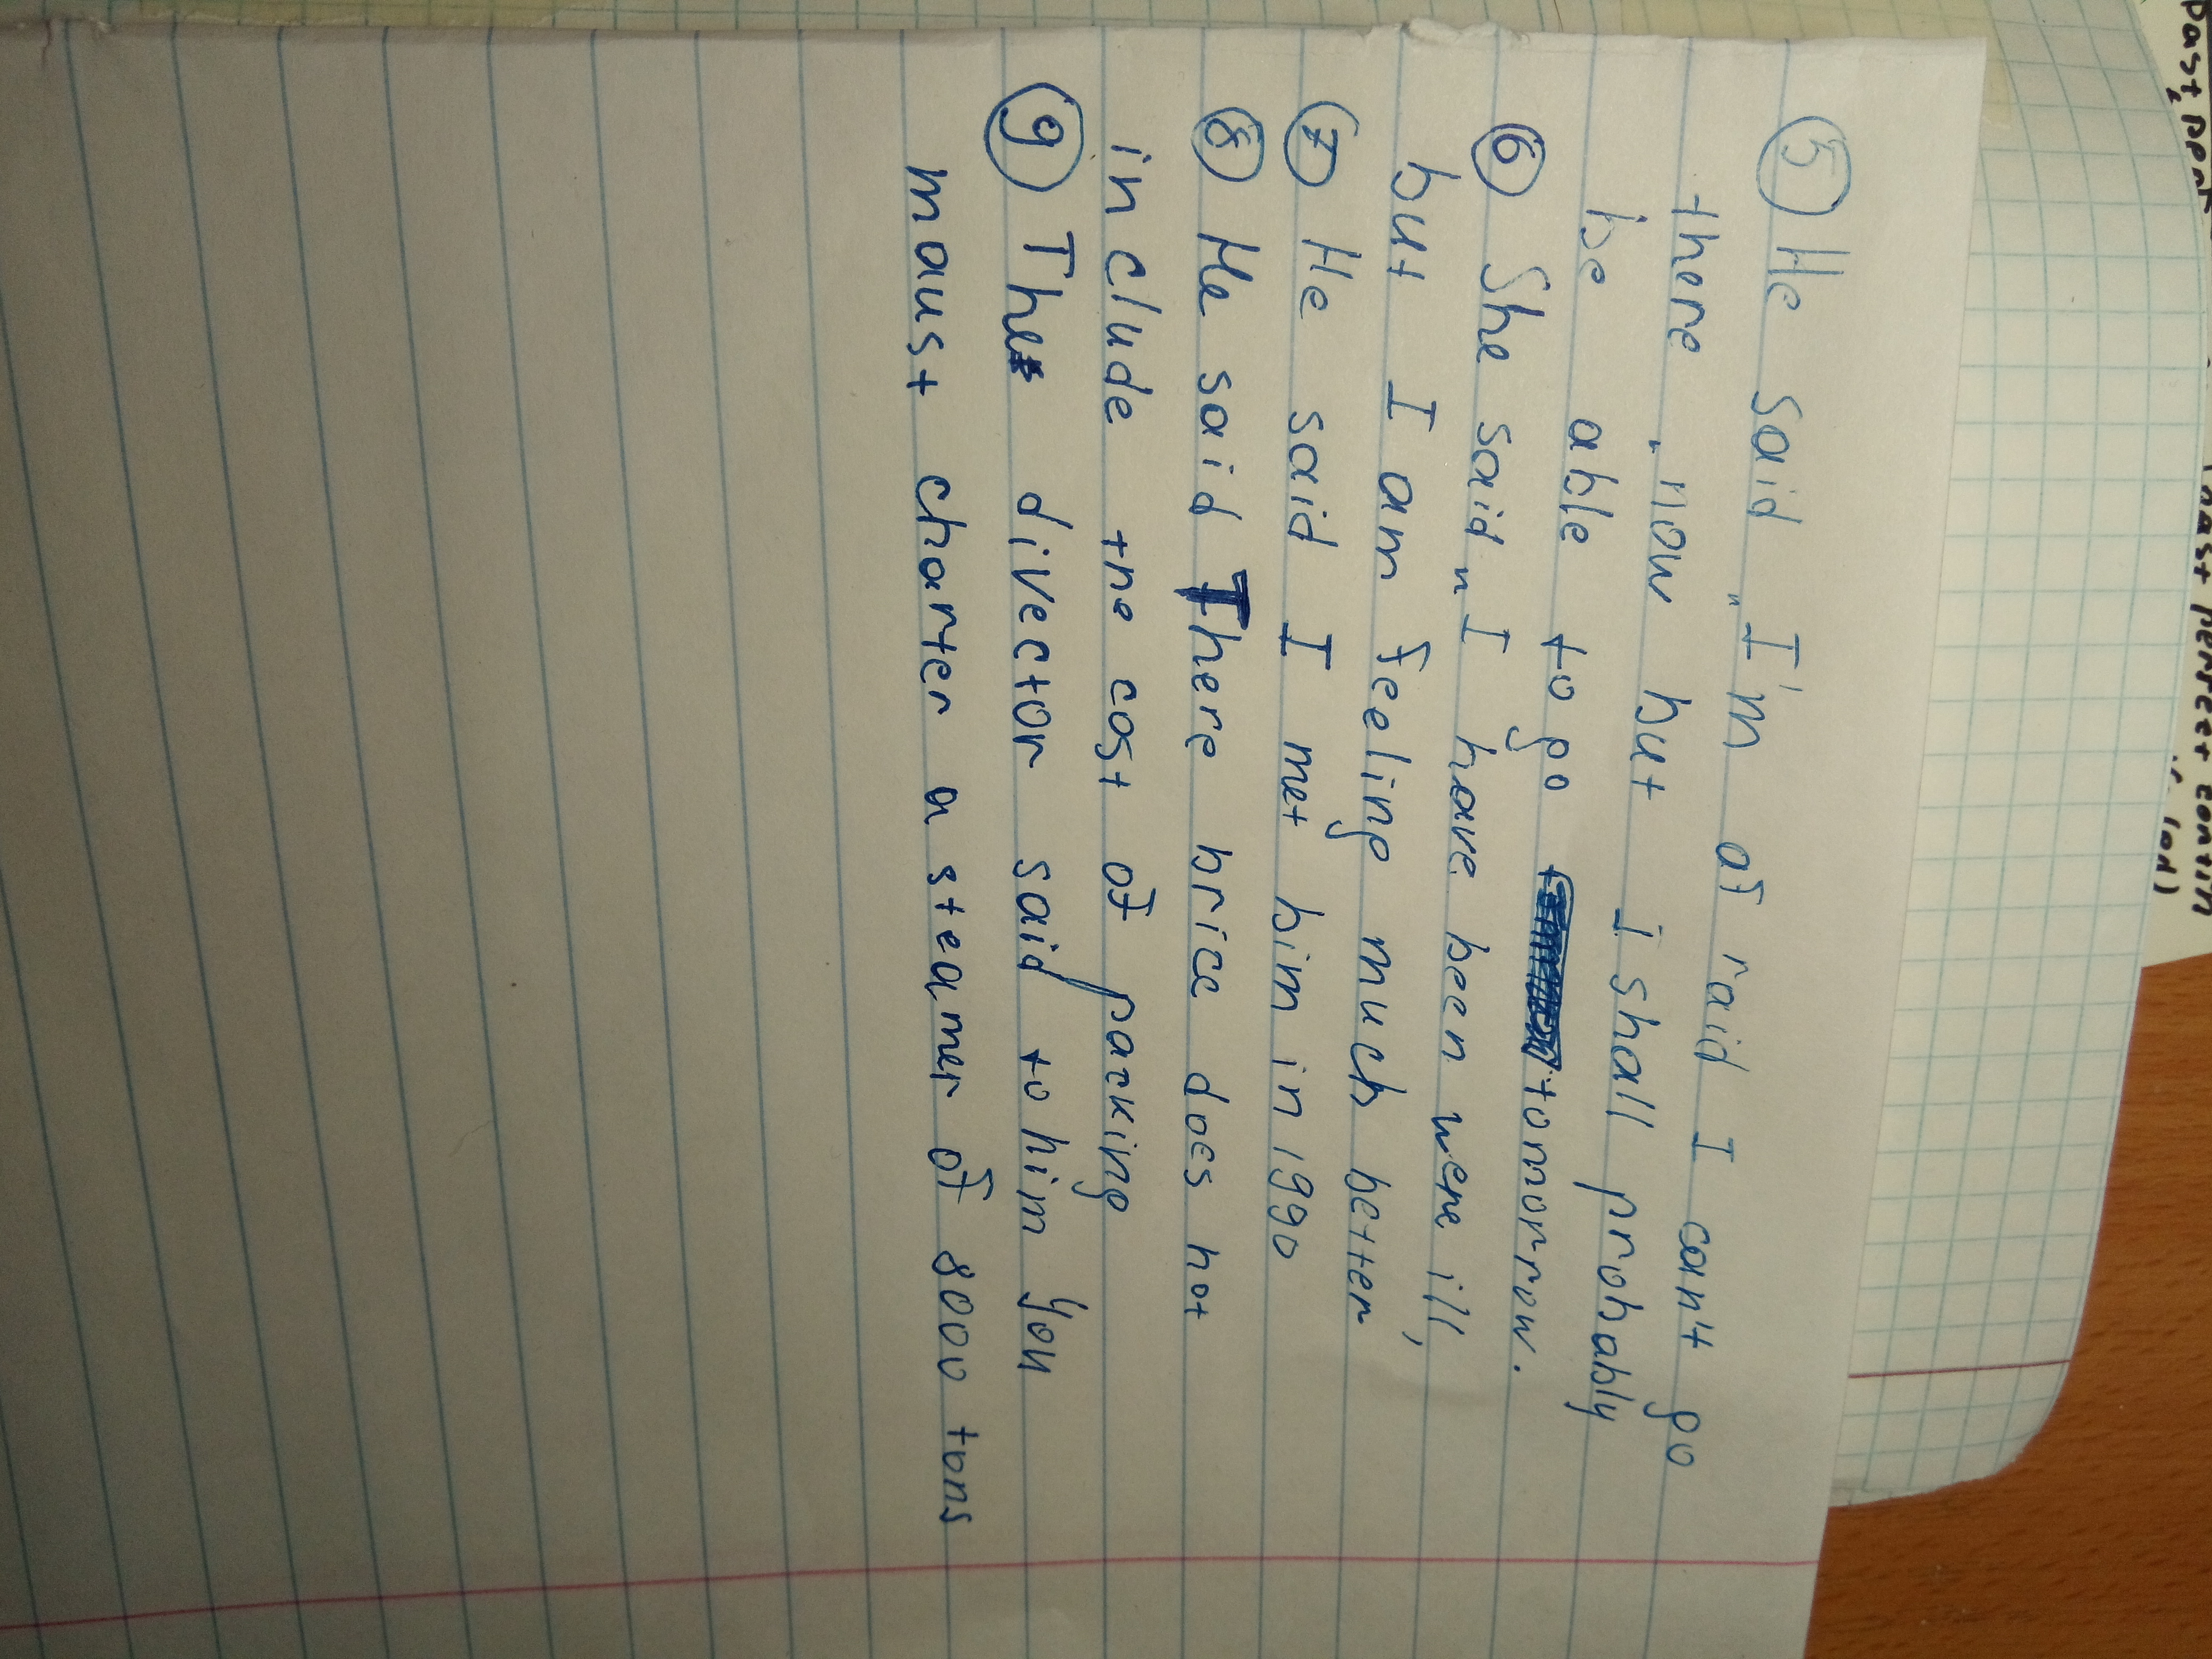 past, pent
past perfect contin
⑤ He said „I'm afraid I can't go
there „ now but I shall probably
be able to go tomorrow.
⑥ She said „I have been were ill,
but I am feeling much better
⑦ He said I met him in 1990
⑧ He said There brice does not
include the cost of packing
⑨ The divector said to him you
maust charter a steamer of 8000 tons